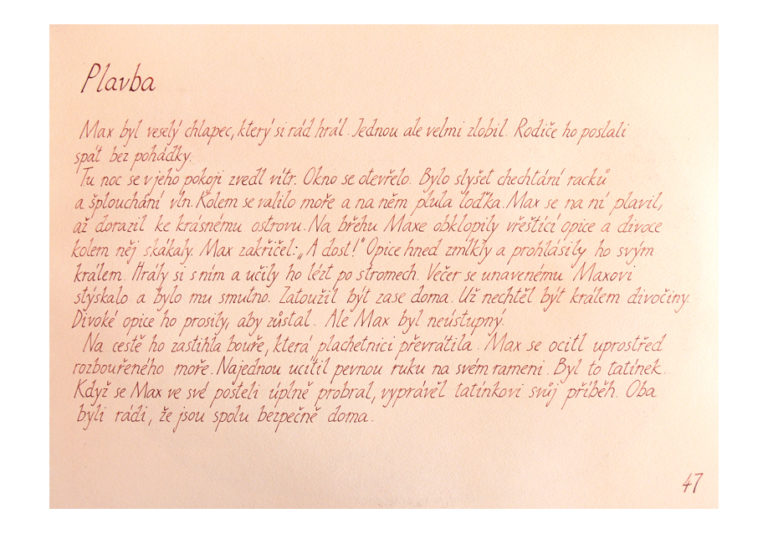 Plavba
Max byl veselý chlapec, který si rád hrál. Jednou ale velmi zlobil. Rodiče ho poslali
spát bez pohádky.
Tu noc se v jeho pokoji zvedl vítr. Okno se otevřelo. Bylo slyšet chechtání racků
a šplouchání vln. Kolem se valilo moře a na něm plula loďka. Max se na ní plavil,
až dorazil ke krásnému ostrovu. Na břehu Maxe obklopily vřeštící opice a divoce
kolem něj skákaly. Max zakřičel: „A dost!" Opice hned zmlkly a prohlásily ho svým
králem. Hrály si s ním a učily ho lézt po stromech. Večer se unavenému Maxovi
stýskalo a bylo mu smutno. Zatoužil být zase doma. Už nechtěl být králem divočiny.
Divoké opice ho prosily, aby zůstal. Ale Max byl neústupný.
Na cestě ho zastihla bouře, která plachetnici převrátila. Max se ocitl uprostřed
rozbouřeného moře. Najednou ucítil pevnou ruku na svém rameni. Byl to tatínek.
Když se Max ve své posteli úplně probral, vyprávěl tatínkovi svůj příběh. Oba
byli rádi, že jsou spolu bezpečně doma.
47